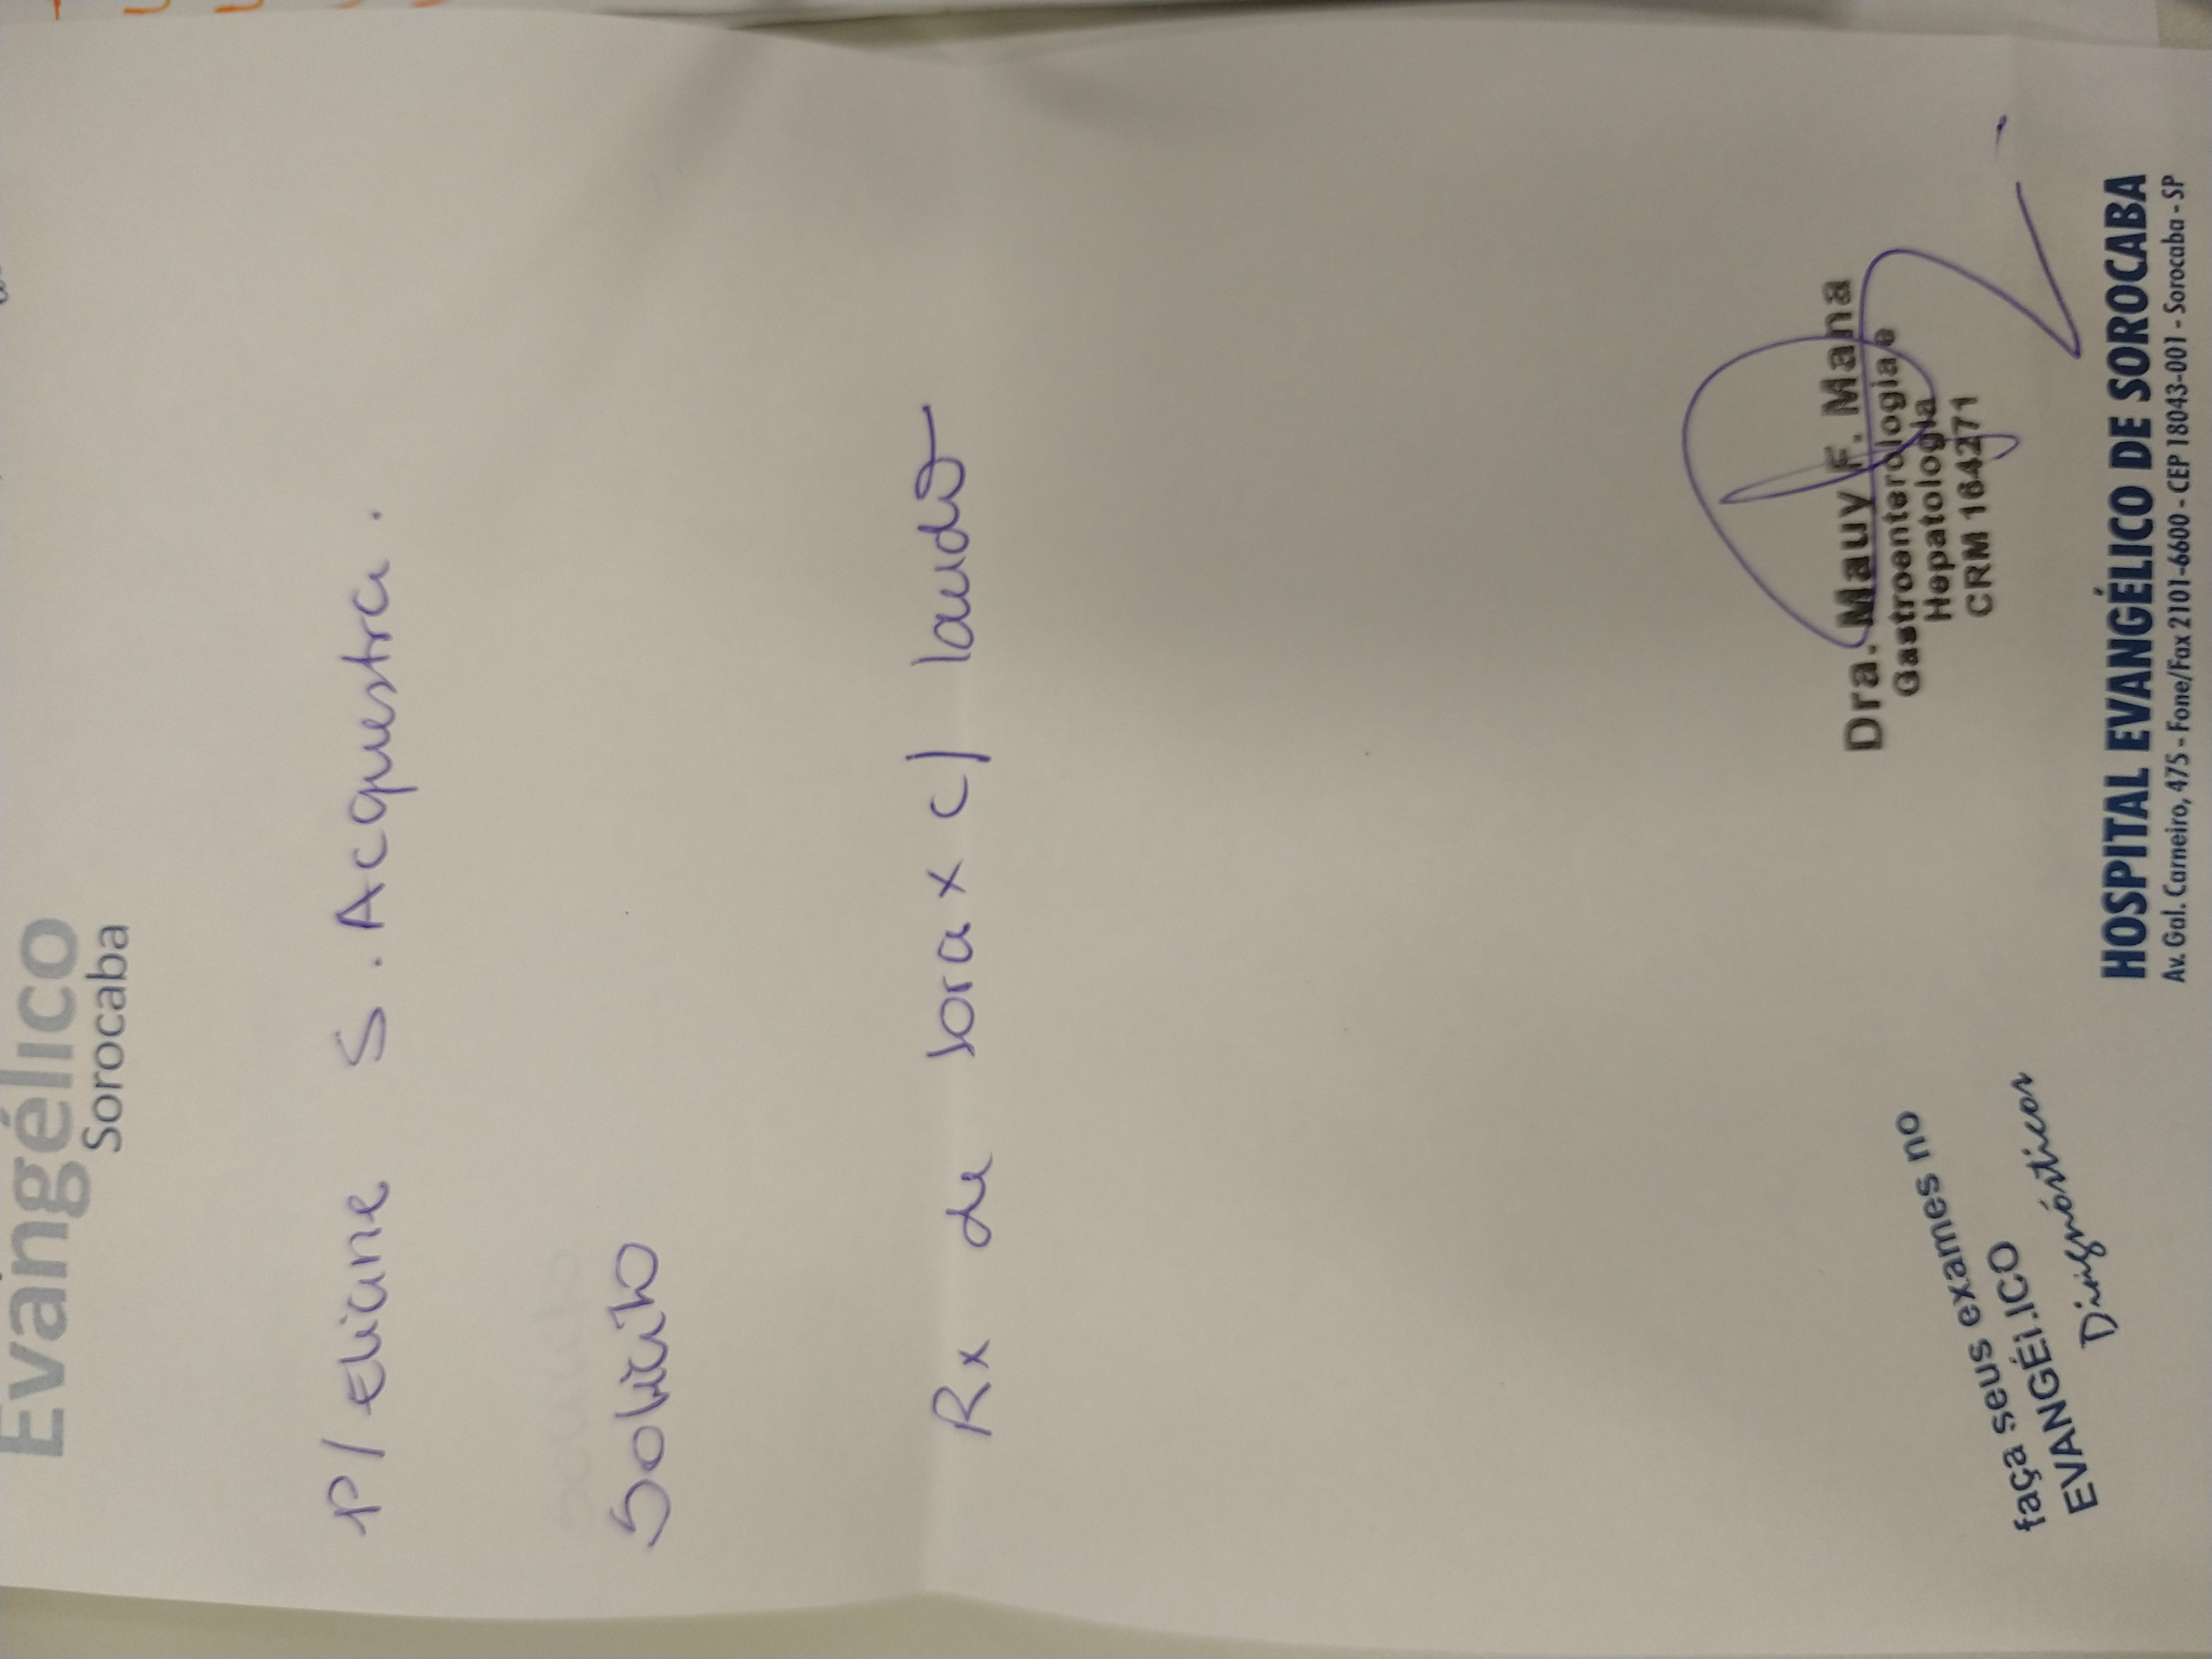 Evangélico
Sorocaba
P/ Eliane S. Acquestra.
Solicito
Solicito
Rx de torax c/ laudo
Dra. Mauy F. Mana
Gastroenterologia e
Hepatologia
CRM 164271
faça seus exames no
EVANGÉLICO
Diagnósticos
HOSPITAL EVANGÉLICO DE SOROCABA
Av. Gal. Carneiro, 475 - Fone/Fax 2101-6600 - CEP 18043-001 - Sorocaba - SP